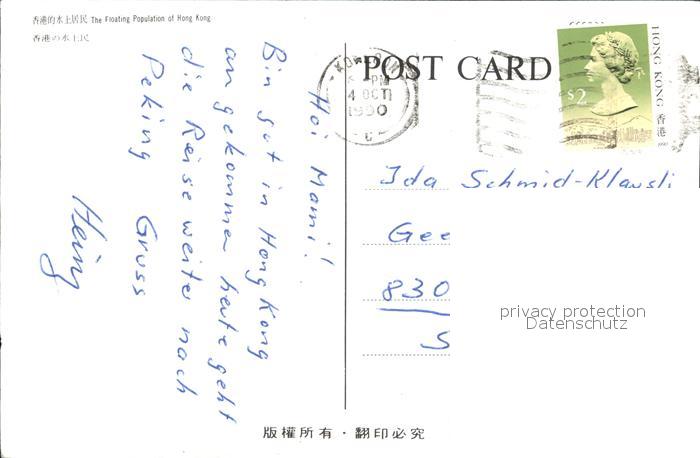 香港的水上居民 The Floating Population of Hong Kong
香港の水上民
POST CARD
KOWLOON
PM
4 OCT
1990
C
HONG KONG 香港
$2
1990
Hoi Mami!
Bin gut in Hong Kong
angekommen heute geht
die Reise weiter nach
Peking Gruss
Heinz
Ida Schmid-Klausli
Gee
830
S
privacy protection
Datenschutz
版權所有·翻印必究